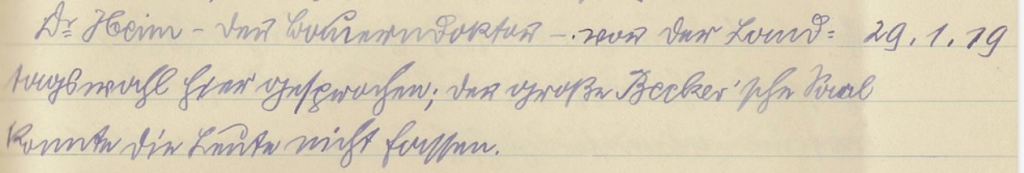 Dr Heim – der Bauerndoktor – vor der Land= 29.1.19
tagswahl hier gesprochen; der große Becker'sche Saal
konnte die Leute nicht fassen.